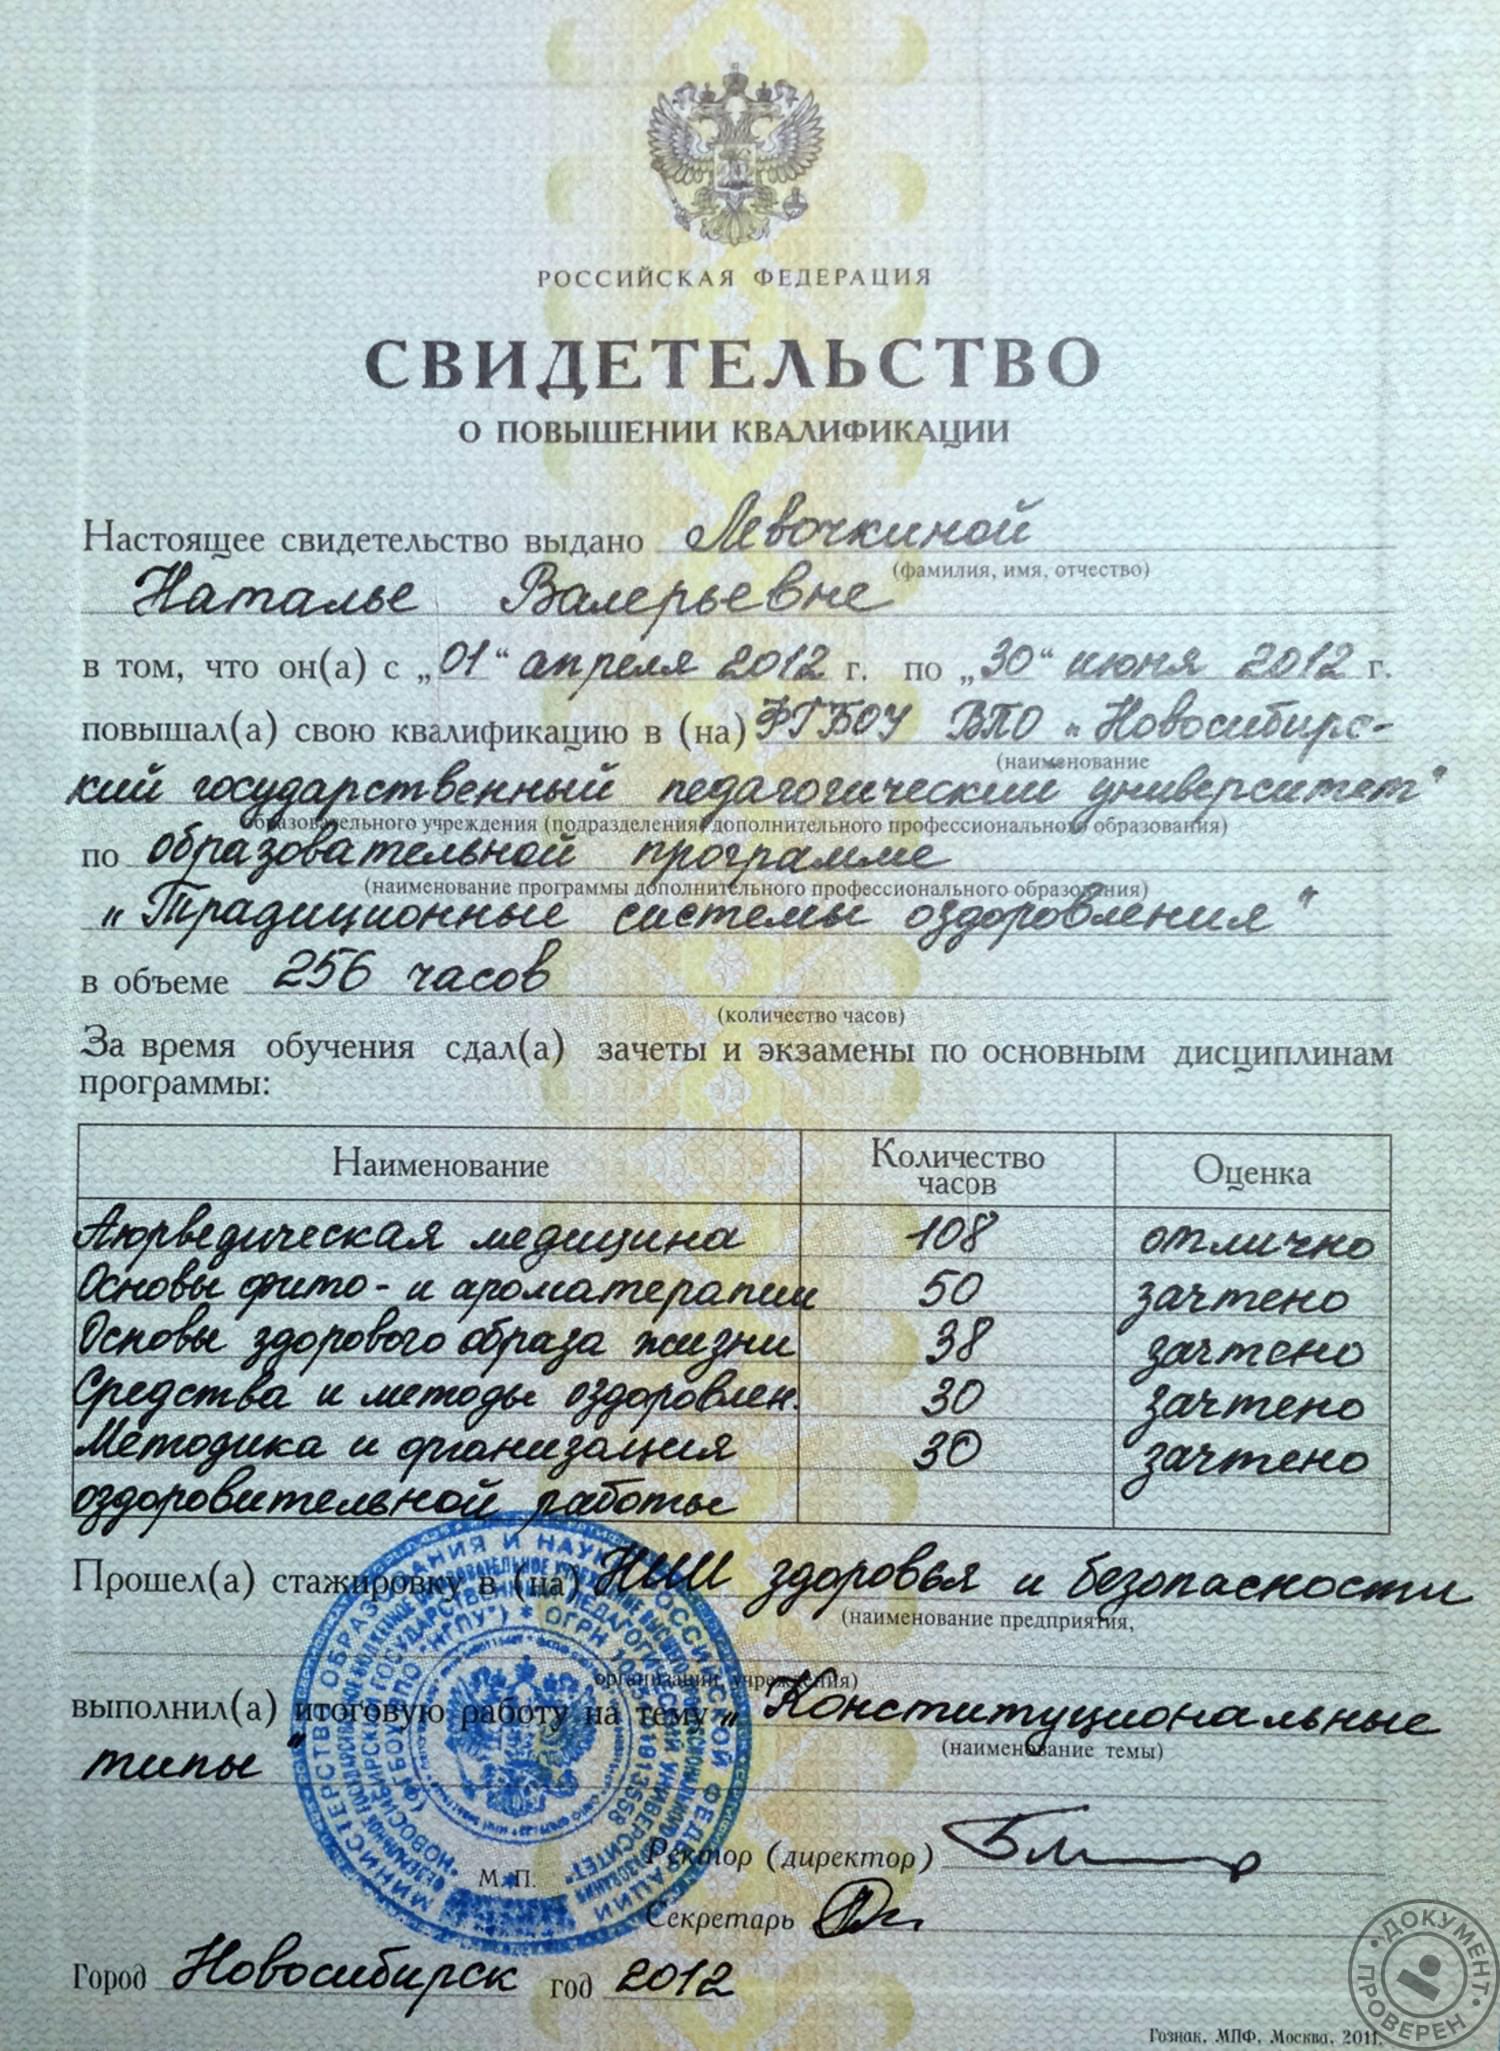 РОССИЙСКАЯ ФЕДЕРАЦИЯ
СВИДЕТЕЛЬСТВО
О ПОВЫШЕНИИ КВАЛИФИКАЦИИ
Настоящее свидетельство выдано Левочкиной
(фамилия, имя, отчество)
Наталье Валерьевне
в том, что он(а) с „01“ апреля 2012 г. по „30“ июня 2012 г.
повышал(а) свою квалификацию в (на) ФГБОУ ВПО „Новосибирс-
(наименование
кий государственный педагогический университет“
образовательного учреждения (подразделения) дополнительного профессионального образования)
по образовательной программе
(наименование программы дополнительного профессионального образования)
„Традиционные системы оздоровления“
в объеме 256 часов
(количество часов)
За время обучения сдал(а) зачеты и экзамены по основным дисциплинам
программы:
Наименование Количество часов Оценка
Аюрведическая медицина 108 отлично
Основы фито- и ароматерапии 50 зачтено
Основы здорового образа жизни 38 зачтено
Средства и методы оздоровлен. 30 зачтено
Методика и организация 30 зачтено
оздоровительной работы
Прошел(а) стажировку в (на) НИИ здоровья и безопасности
(наименование предприятия,
организации, учреждения)
выполнил(а) итоговую работу на тему „Конституциональные
(наименование темы)
типы“
Ректор (директор)
М. П.
Секретарь
Город Новосибирск год 2012
МИНИСТЕРСТВО ОБРАЗОВАНИЯ И НАУКИ РОССИЙСКОЙ ФЕДЕРАЦИИ
ДОКУМЕНТ ПРОВЕРЕН
Гознак, МПФ, Москва, 2011.